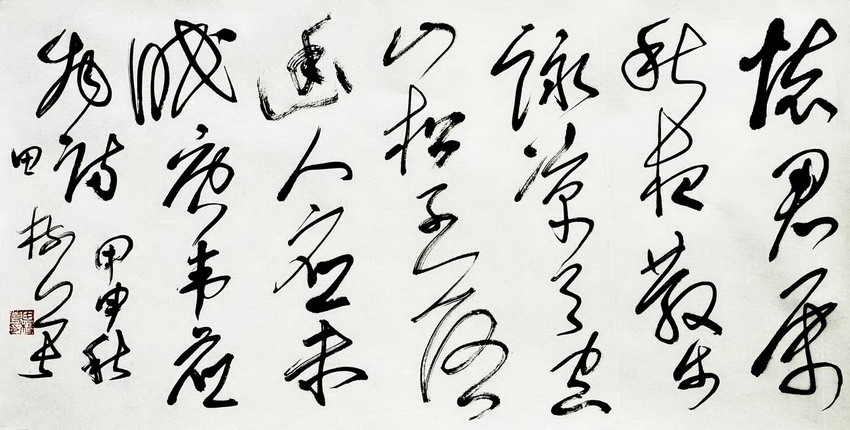 懷君属
秋夜散步
詠凉天空
山松子落
幽人应未
眠唐韦应
物诗甲申秋
田树苌